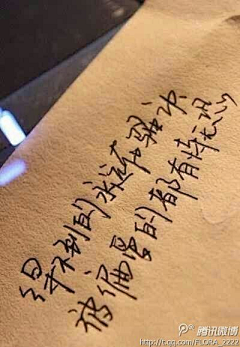 得不到的永远在骚动
被偏爱的都有恃无恐
腾讯微博
http://t.qq.com/FLORA_2222